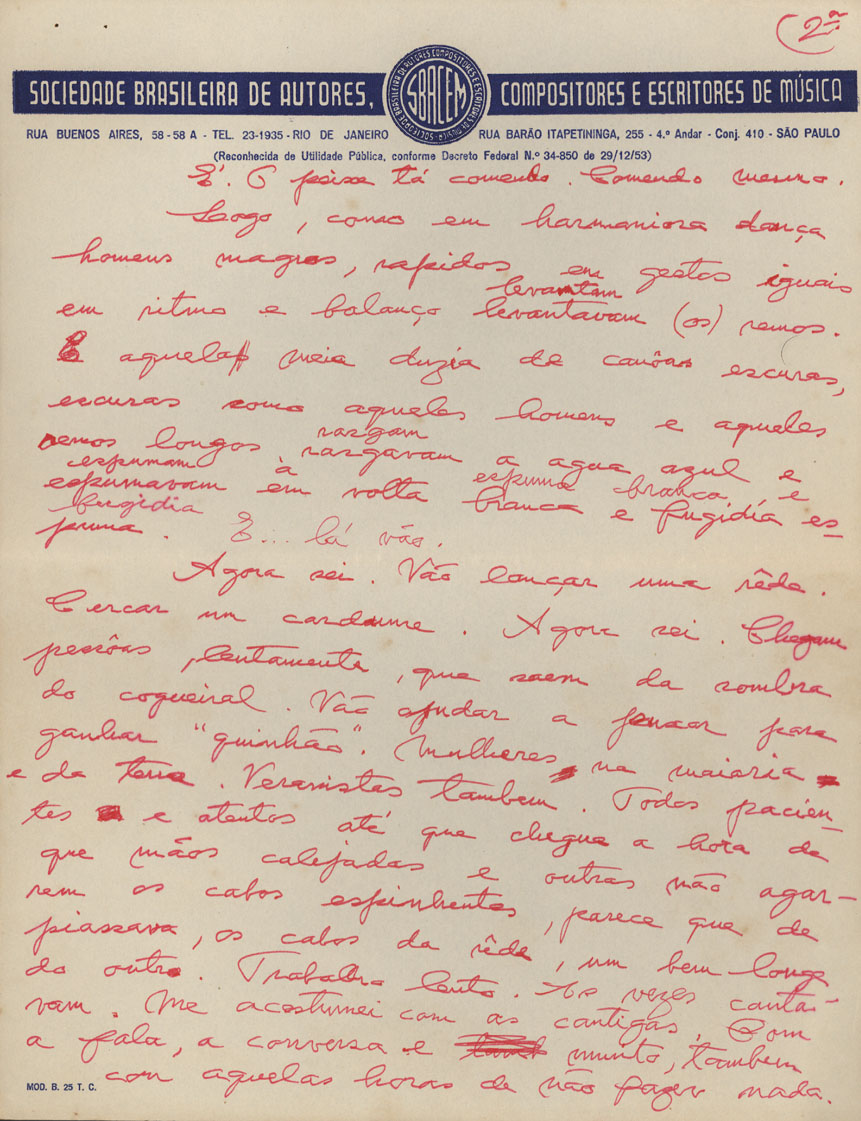 2ª
SOCIEDADE BRASILEIRA DE AUTORES, COMPOSITORES E ESCRITORES DE MÚSICA
SBACEM
RUA BUENOS AIRES, 58-58 A - TEL. 23-1935 - RIO DE JANEIRO RUA BARÃO ITAPETININGA, 255 - 4.º Andar - Conj. 410 - SÃO PAULO
(Reconhecida de Utilidade Pública, conforme Decreto Federal N.º 34-850 de 29/12/53)
É. O peixe tá comendo. Comendo mesmo.
Logo, como em harmoniosa dança
homens magros, rapidos em gestos iguais
levantam
em ritmo e balanço levantavam (os) remos.
E aquela meia duzia de canôas escuras,
escuras como aqueles homens e aqueles
rasgam
remos longos rasgavam a agua azul e
espumam à espuma branca e
espumavam em volta branca e fugidía es-
fugidia
puma. E... lá vão.
Agora sei. Vão lançar uma rêde.
Cercar um cardume. Agora sei. Chegam
pessôas, lentamente, que saem da sombra
do coqueiral. Vão ajudar a puxar para
ganhar "quinhão". Mulheres na maioria
e da terra. Veranistas tambem. Todos pacien-
tes e atentos até que chegue a hora de
que mãos calejadas e outras não agar-
rem os cabos espinhentos, parece que de
piassava, os cabos da rêde, um bem longe
do outro. Trabalho lento. As vezes canta-
vam. Me acostumei com as cantigas. Com
a fala, a conversa e muito, tambem
com aquelas horas de não fazer nada.
MOD. B. 25 T. C.